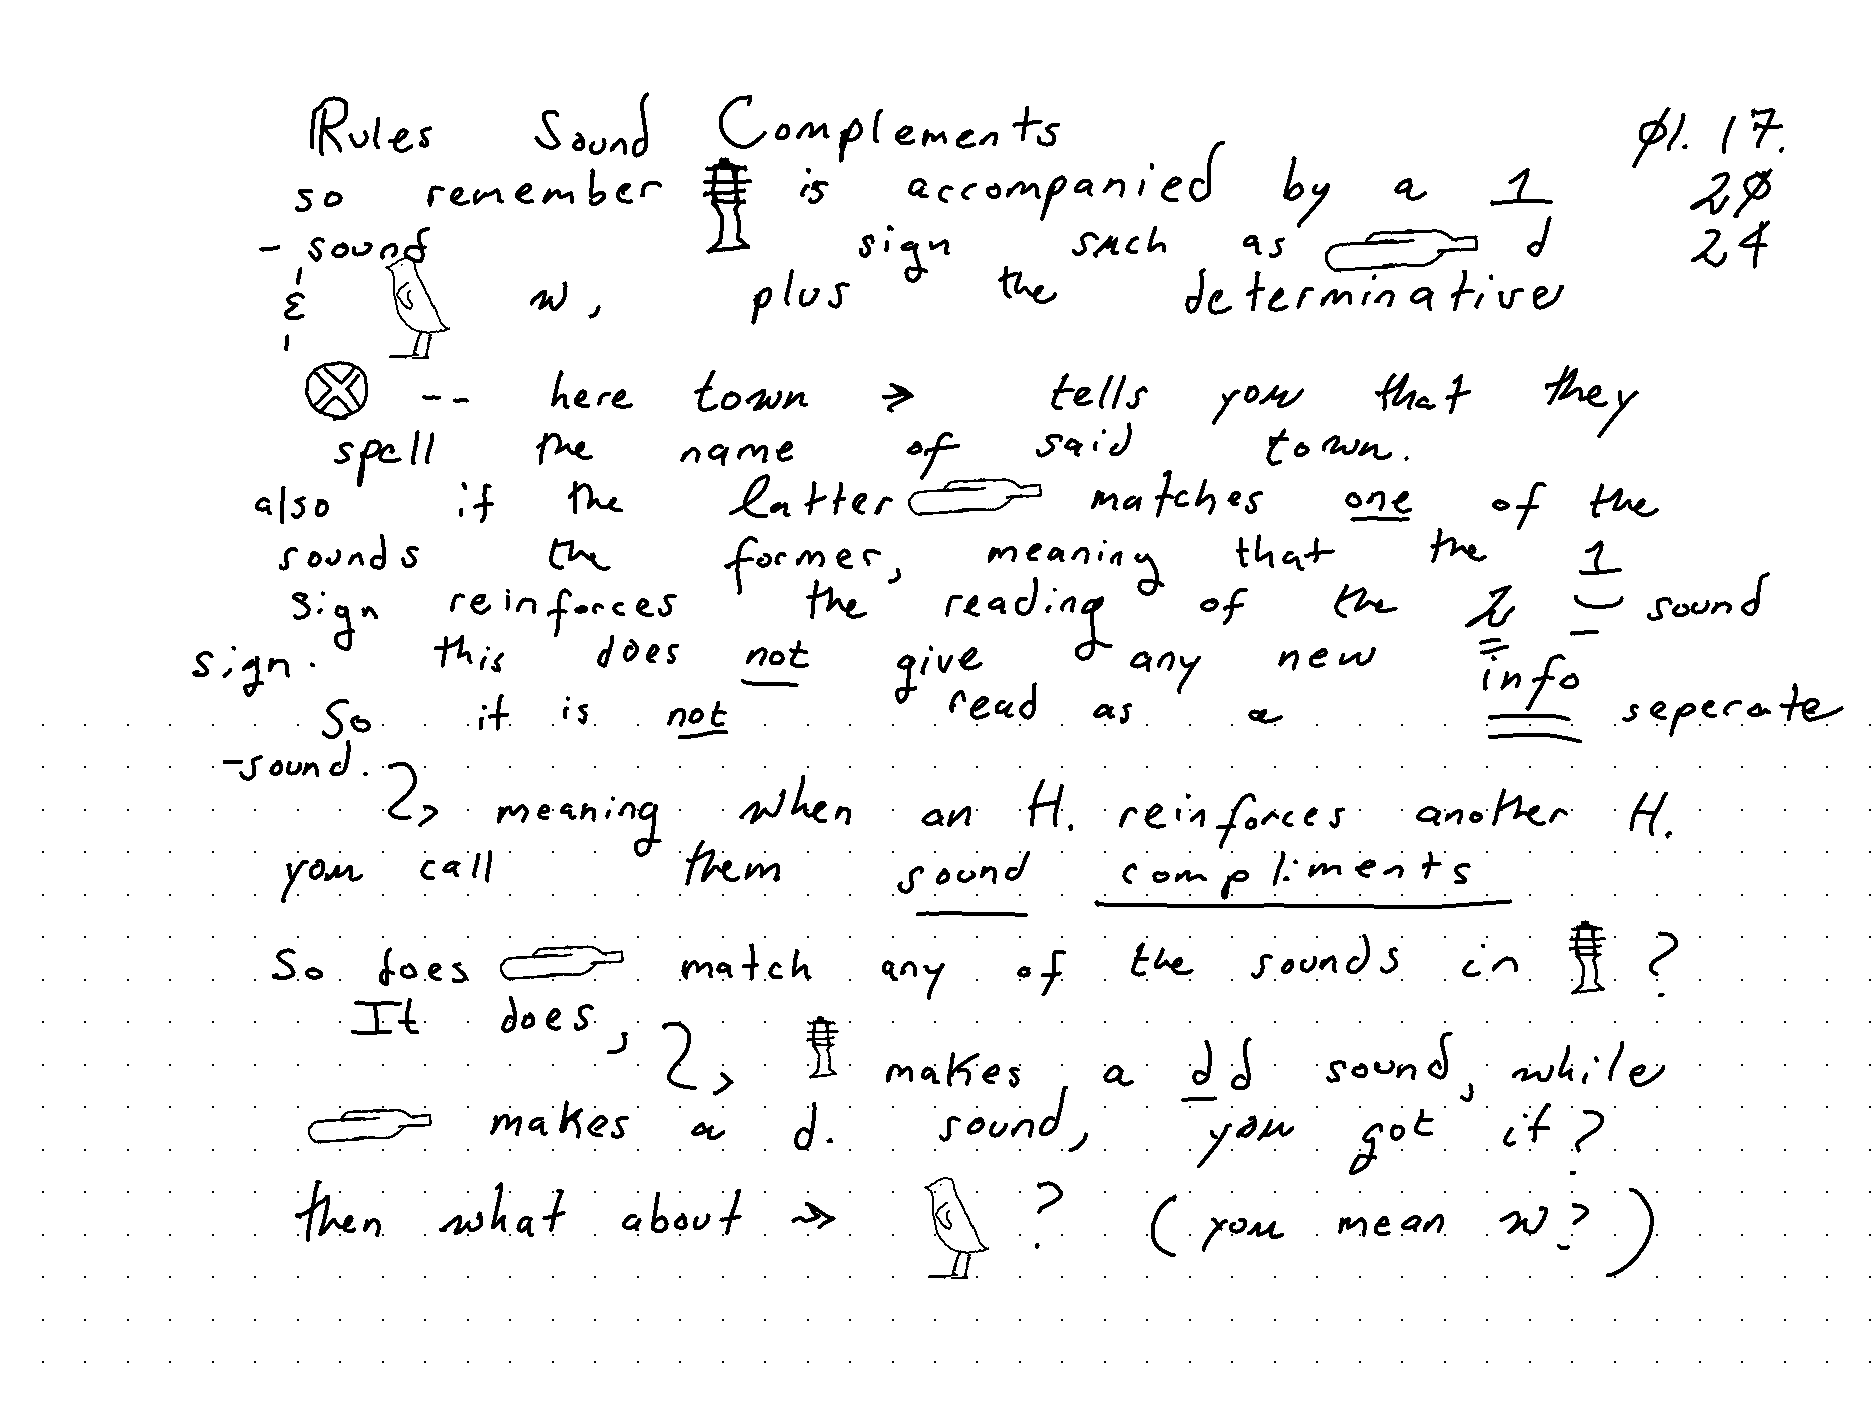 Rules Sound Complements 01. 17.
so remember is accompanied by a 1 20
- sound sign such as d 24
& w, plus the determinative
-- here town → tells you that they
spell the name of said town.
also if the latter matches one of the
sounds the former, meaning that the 1
sign reinforces the reading of the 2 - sound
sign. this does not give any new info
So it is not read as a seperate
-sound.
meaning when an H. reinforces another H.
you call them sound compliments
So does match any of the sounds in ?
It does, makes a dd sound, while
makes a d. sound, you got it?
then what about → ? (you mean w?)